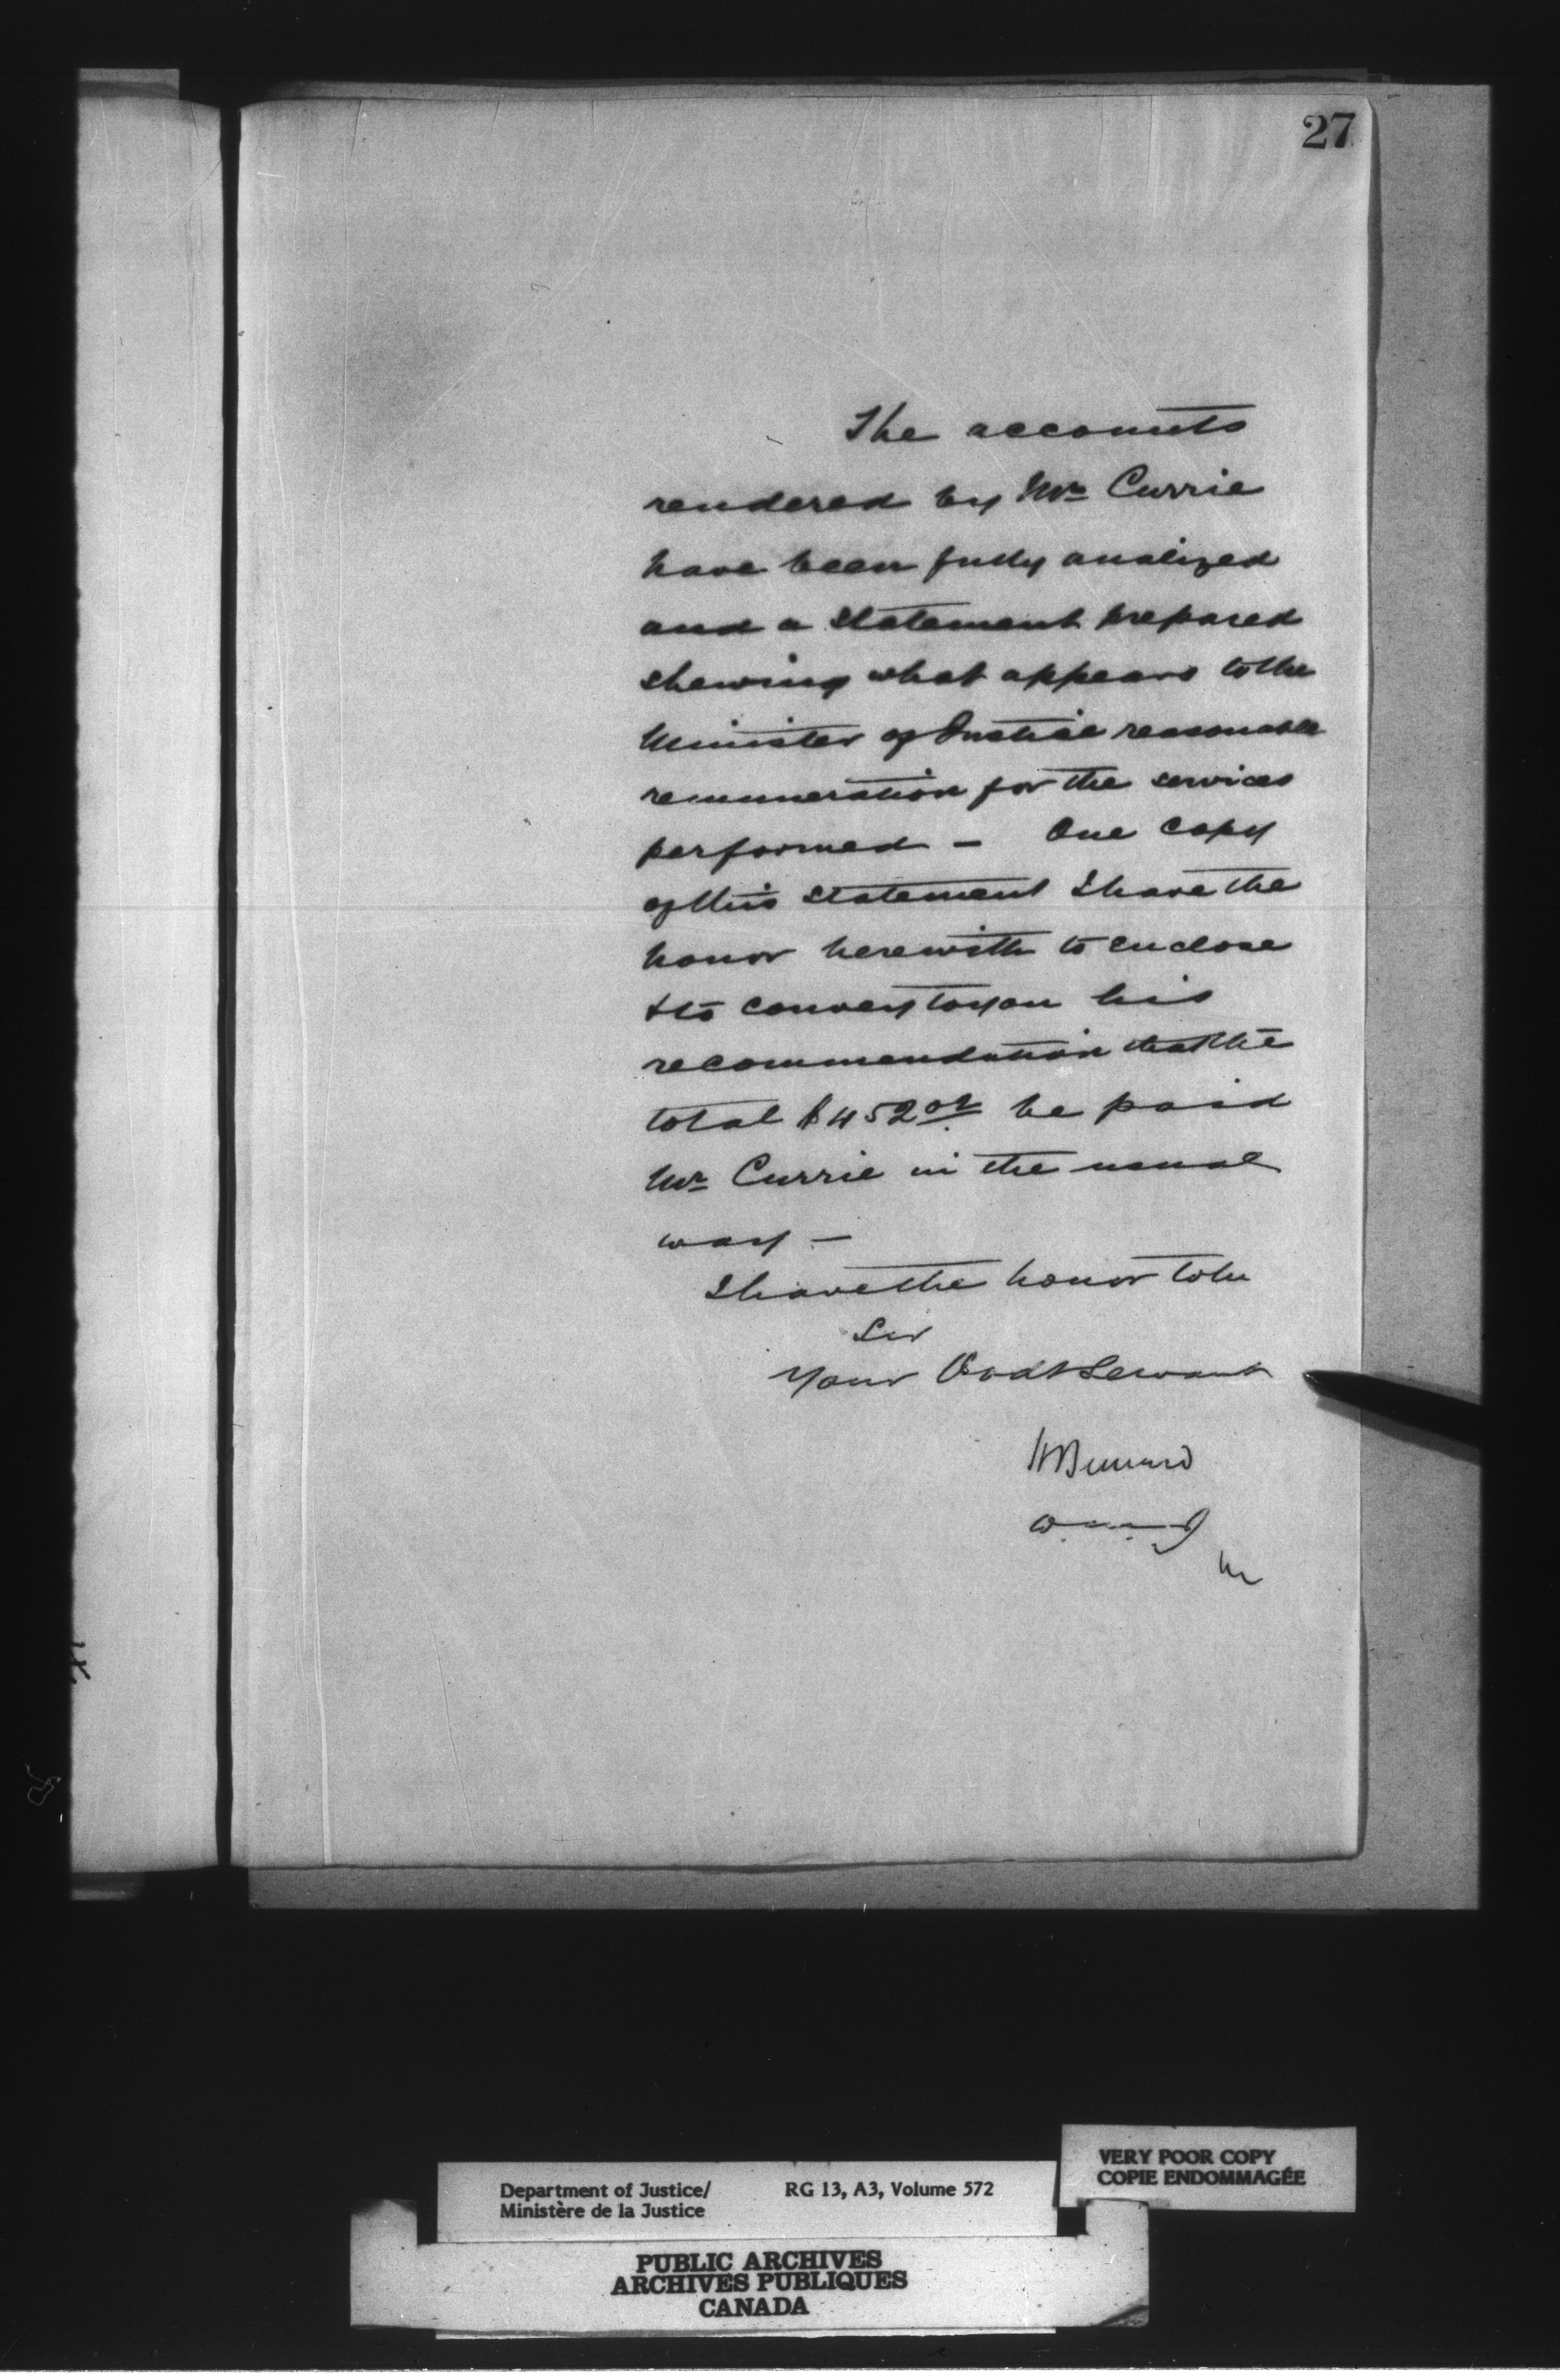 27
The accounts
rendered by Mr Currie
have been fully analized
and a statement prepared
shewing what appears to the
Minister of Justice reasonable
remuneration for the services
performed – One copy
of this statement I have the
honor herewith to enclose
& to convey to you his
recommendation that the
total $452.02 be paid
Mr Currie in the usual
way –
I have the honor to be
Sir
Your Obdt Servant
H Bernard
Department of Justice/
Ministère de la Justice
RG 13, A3, Volume 572
VERY POOR COPY
COPIE ENDOMMAGÉE
PUBLIC ARCHIVES
ARCHIVES PUBLIQUES
CANADA